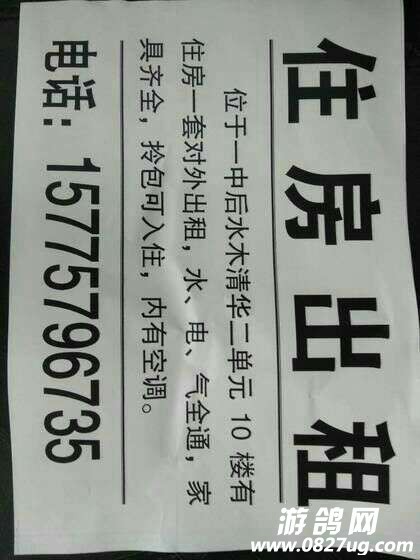 住房出租
位于一中后水木清华二单元 10 楼有
住房一套对外出租，水、电、气全通，家
具齐全，拎包可入住，内有空调。
电话：15775796735
游鸽网
www.0827ug.com